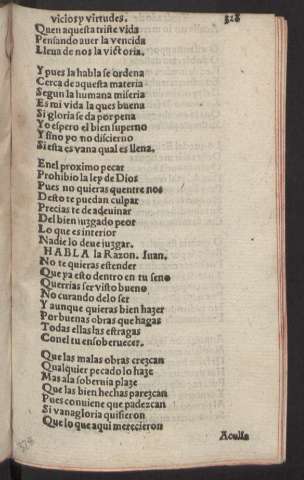 vicios y virtudes. 328
Quen aquesta triste vida
Pensando auer la vencida
Lleua de nos la victoria.
Y pues la habla se ordena
Cerca de aquesta materia
Segun la humana miseria
Es mi vida la ques buena
Si gloria se da por pena
Yo espero el bien superno
Y sino yo no discierno
Si esta es vana qual es llena.
Enel proximo pecar
Prohibio la ley de Dios
Pues no quieras quentre nos
Desto te puedan culpar
Precias te de adeuinar
Del bien juzgado peor
Lo que es interior
Nadie lo deue juzgar.
HABLA la Razon. Iuan.
No te quieras estender
Que ya esto dentro en tu seno
Querrias ser visto bueno
No curando delo ser
Y aunque quieras bien hazer
Por buenas obras que hagas
Todas ellas las estragas
Conel tu ensoberuecer.
Que las malas obras crezcan
Qualquier pecado lo haze
Mas ala soberuia plaze
Que las bien hechas parezcan
Pues conuiene que padezcan
Si vanagloria quisieron
Que lo que aqui merecieron
Acusso
328